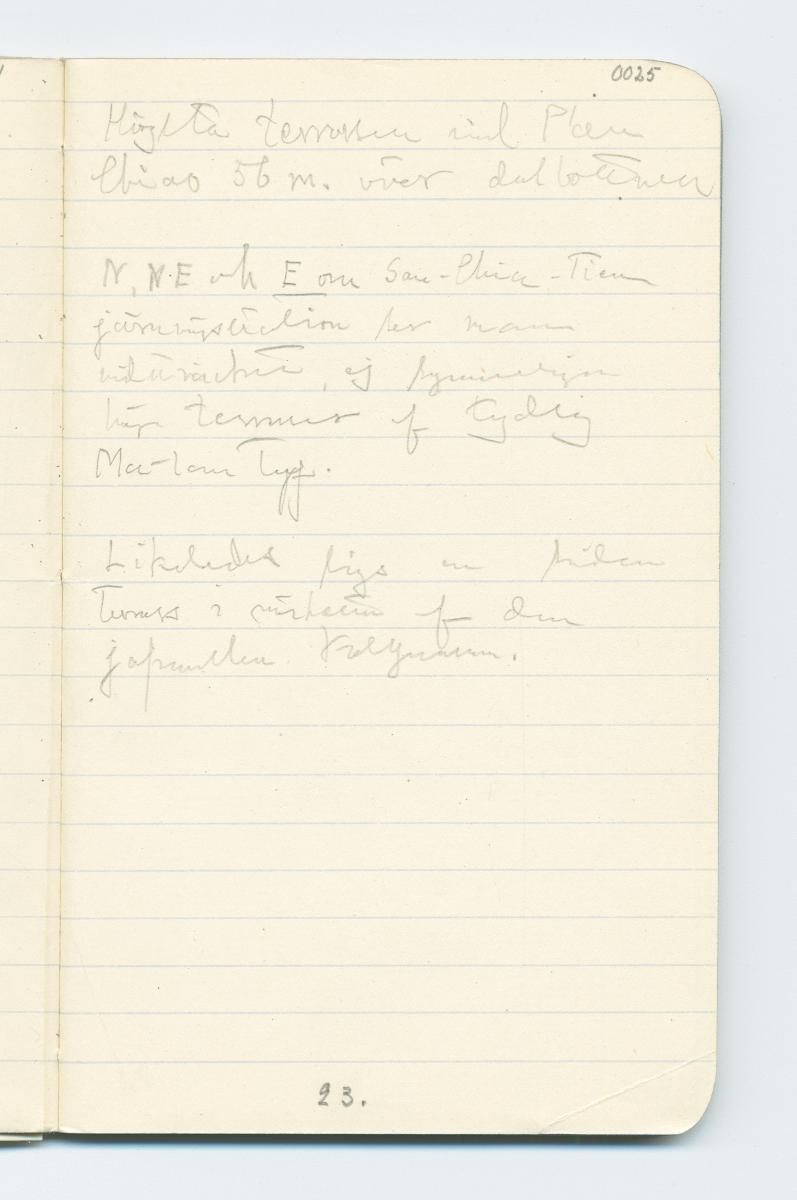 0025
Högsta terrassen vid P'ien
Chiao 56 m. över dalbottnen
N, NE och E om San-Chia-Tien
järnvägsstation ser man
vidsträckta, ej synnerligen
höga terrasser af tydlig
Ma-lan Typ.
Likaledes ses en sådan
Terrass i närheten af den
japanska
23.